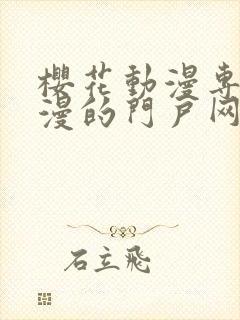 櫻花動漫専
漫的門戶网
石立飛